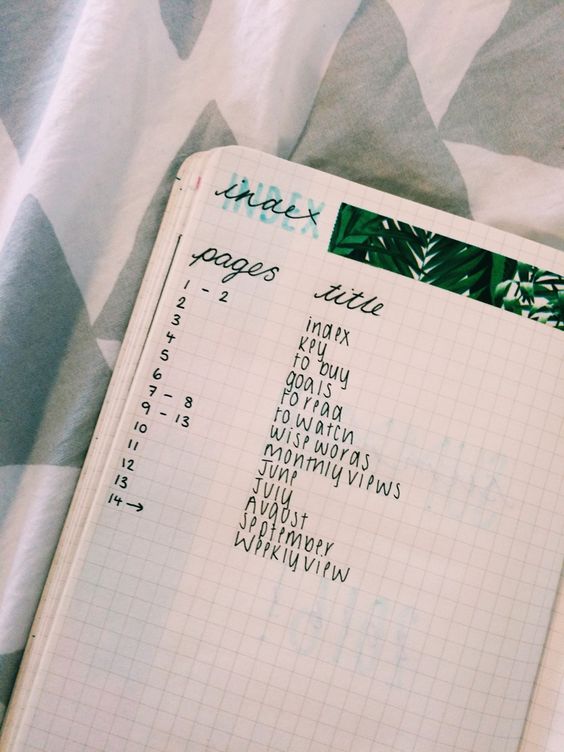 INDEX
index
pages title
1 - 2 index
2 key
3 to buy
4 goals
5 to read
6 to watch
7 - 8 wise words
9 - 13 monthly views
10 June
11 July
12 August
13 September
14 → weekly view